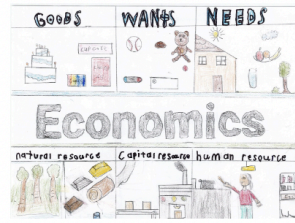 GOODS WANTS NEEDS
Economics
natural resource Capital resource human resource